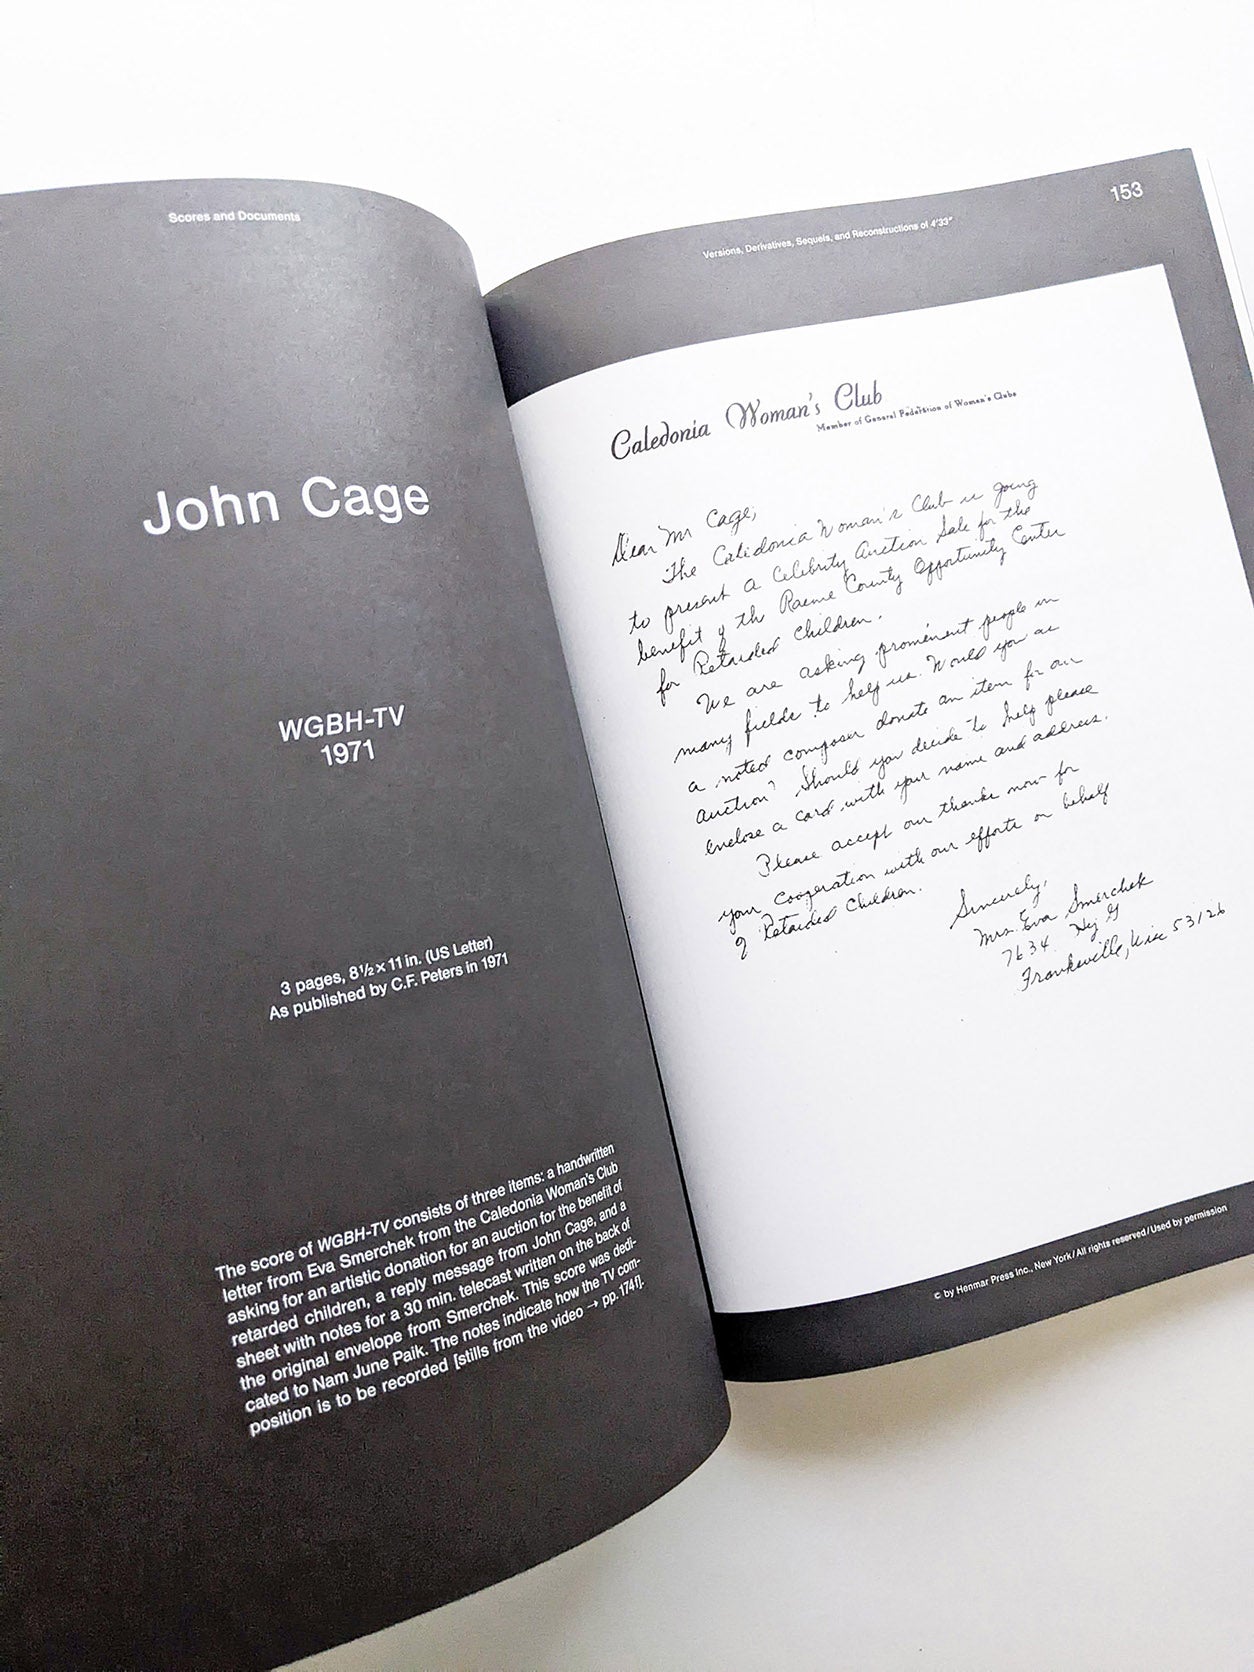 Scores and Documents
John Cage
WGBH-TV
1971
3 pages, 8½ × 11 in. (US Letter)
As published by C.F. Peters in 1971
The score of WGBH-TV consists of three items: a handwritten
letter from Eva Smerchek from the Caledonia Woman's Club
asking for an artistic donation for an auction for the benefit of
retarded children, a reply message from John Cage, and a
sheet with notes for a 30 min. telecast written on the back of
the original envelope from Smerchek. This score was dedi-
cated to Nam June Paik. The notes indicate how the TV com-
position is to be recorded [stills from the video → pp. 174 f].
153
Versions, Derivatives, Sequels, and Reconstructions of 4'33"
Caledonia Woman's Club
Member of General Federation of Women's Clubs
Dear Mr Cage,
The Caledonia Woman's Club is going
to present a Celebrity Auction Sale for the
benefit of the Racine County Opportunity Center
for Retarded Children.
We are asking prominent people in
many fields to help us. Would you as
a noted composer donate an item for our
auction? Should you decide to help please
enclose a card with your name and address.
Please accept our thanks now for
your cooperation with our efforts on behalf
of Retarded Children.
Sincerely,
Mrs. Eva Smerchek
7634 Hy G
Franksville, Wisc 53126
© by Henmar Press Inc., New York / All rights reserved / Used by permission